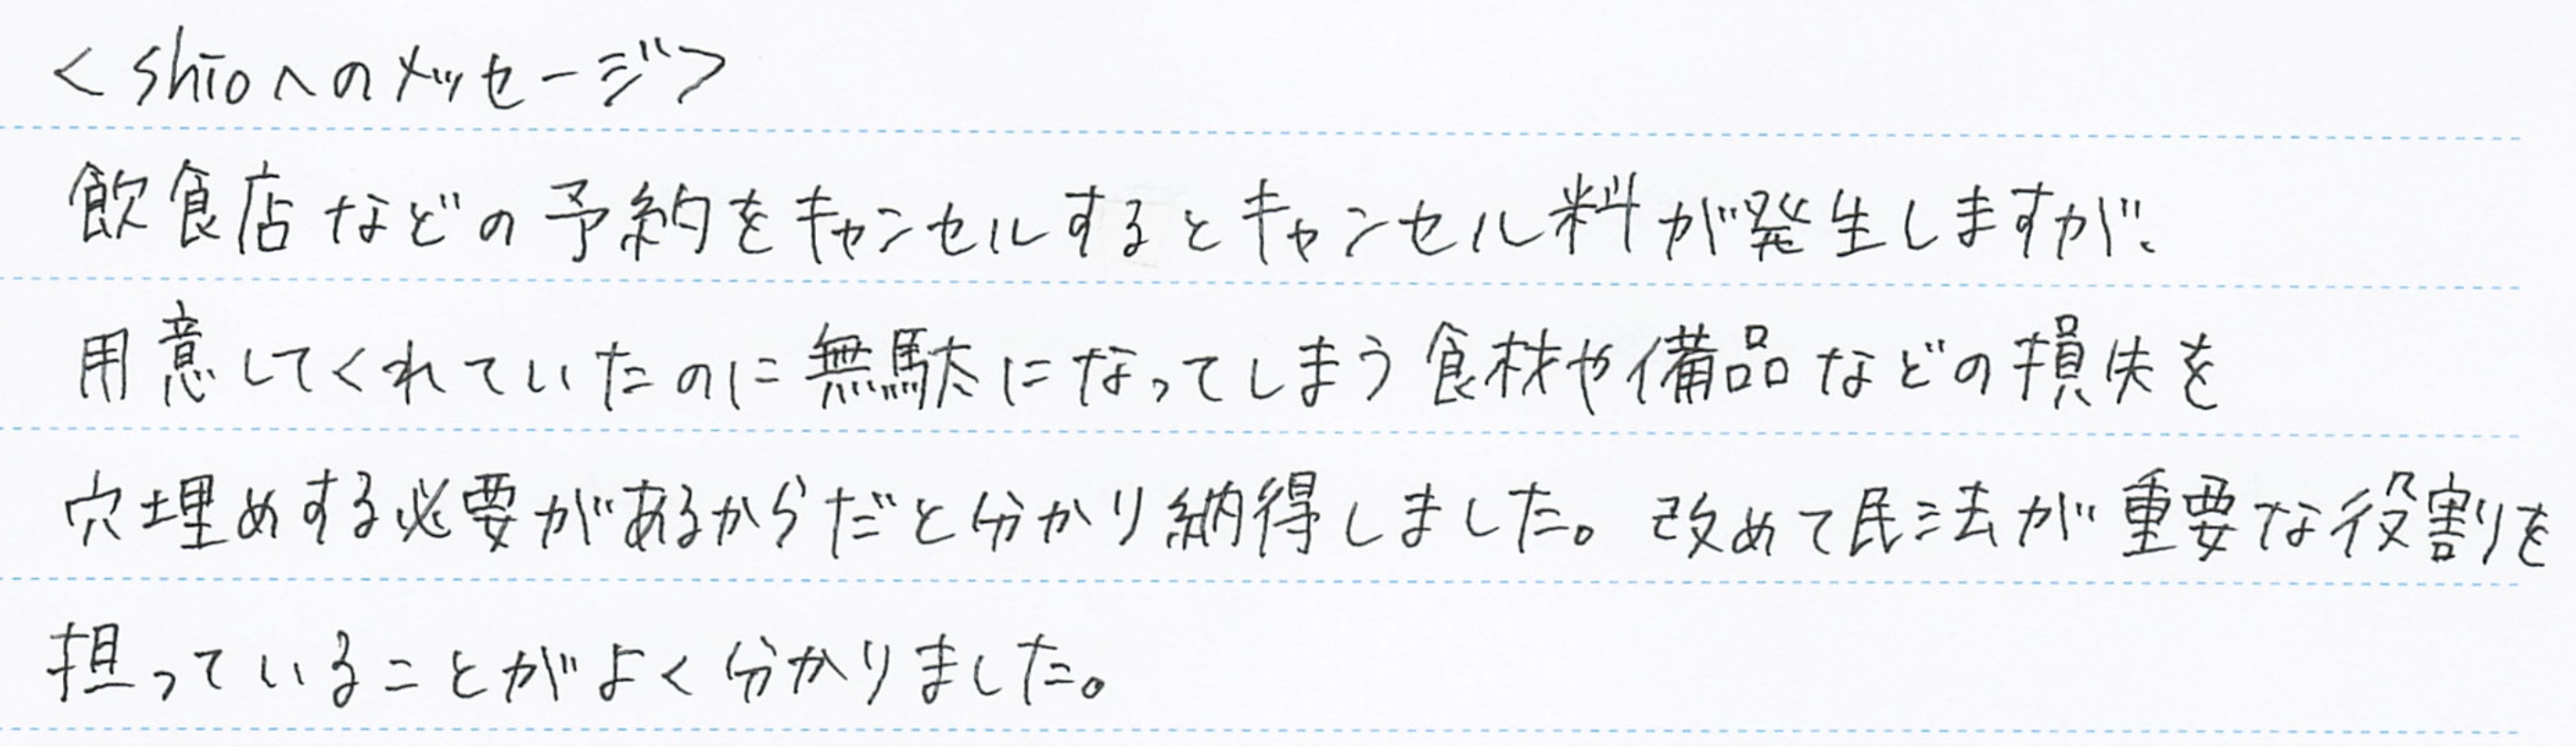 <shioへのメッセージ>
飲食店などの予約をキャンセルするとキャンセル料が発生しますが、
用意してくれていたのに無駄になってしまう食材や備品などの損失を
穴埋めする必要があるからだと分かり納得しました。改めて民法が重要な役割を
担っていることがよく分かりました。